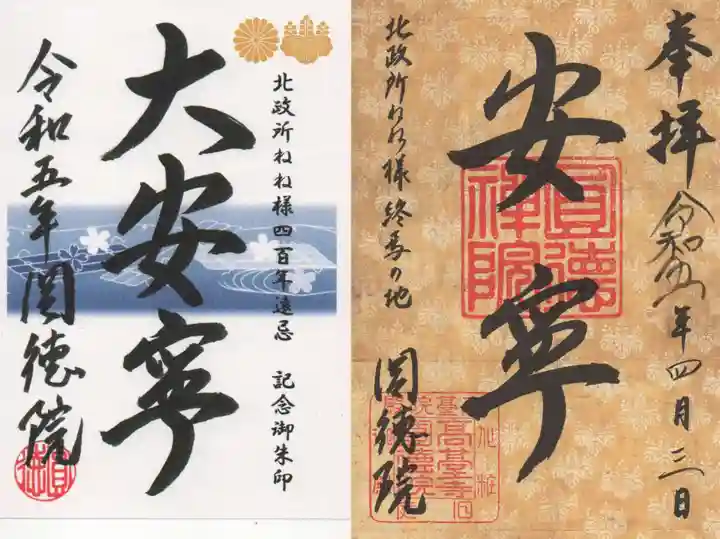 北政所ねね様四百年遠忌 記念御朱印
大安寧
令和五年圓徳院
奉拝 令和五年四月三日
安寧
圓德禅院
北政所ねね様終焉の地
圓徳院
高臺寺